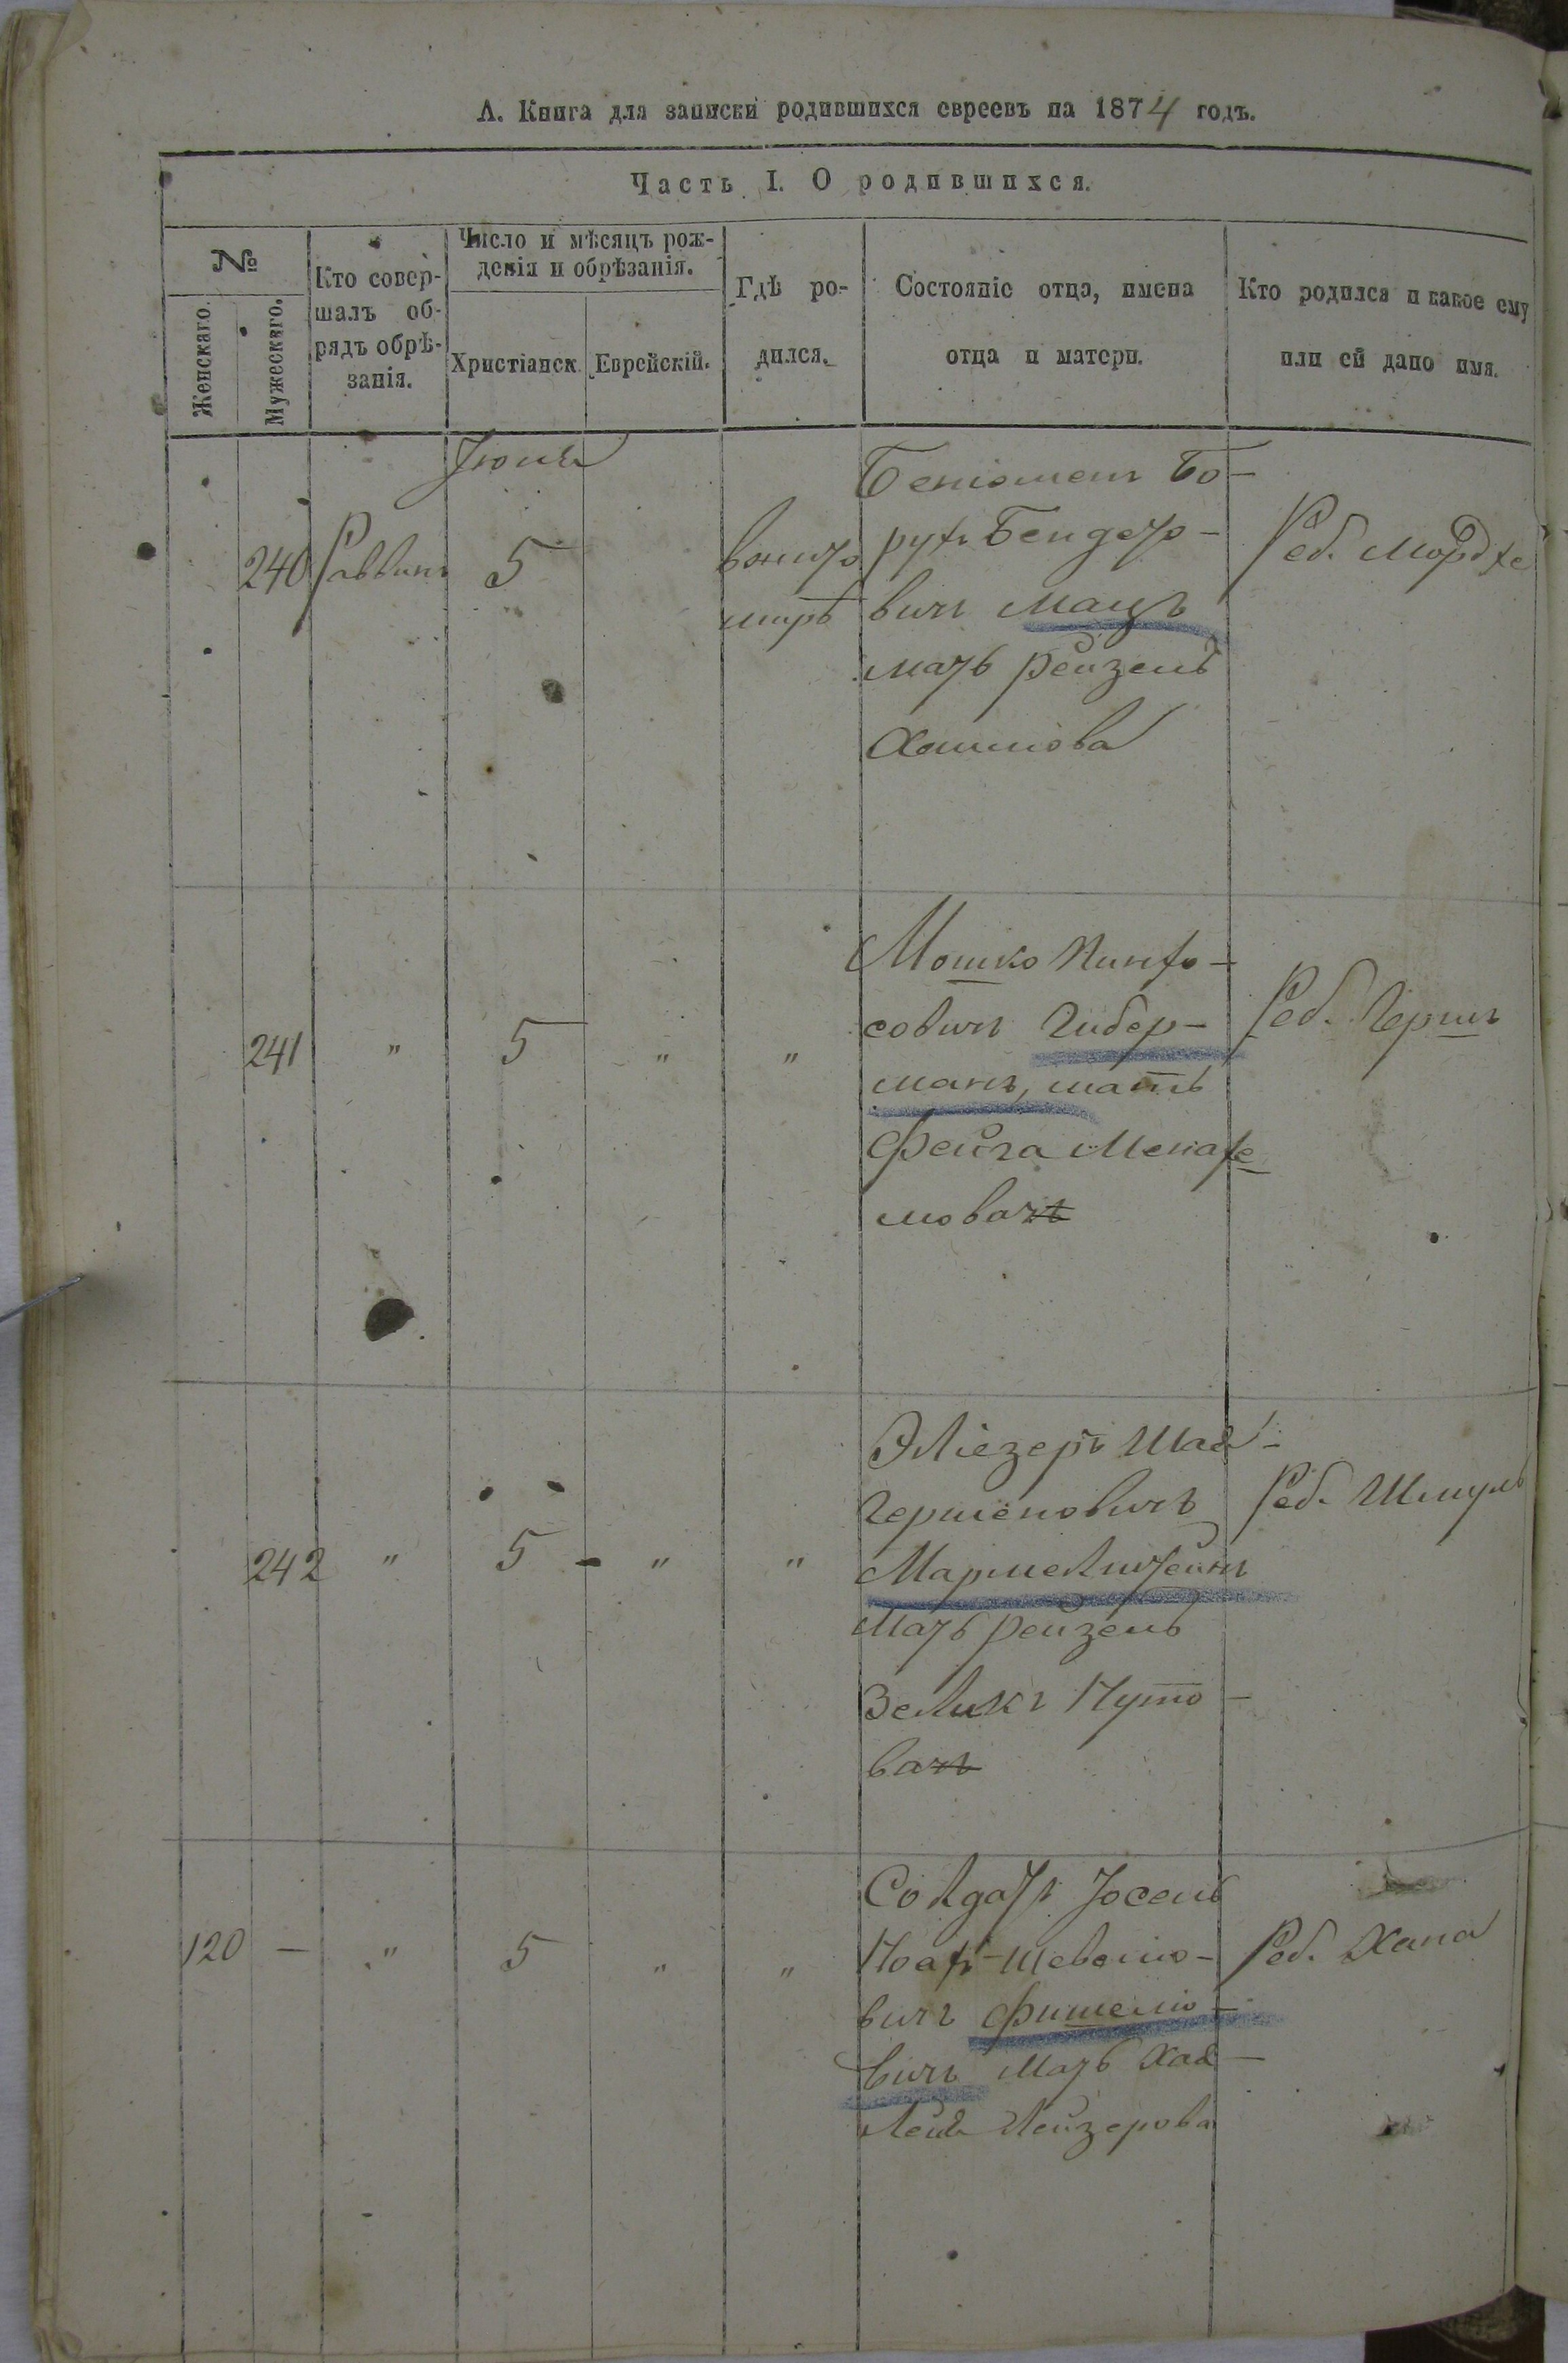 А. Книга для записки родившихся евреевъ на 1874 годъ.
Часть I. О родившихся.
№
Женскаго.
Мужескаго.
Кто совер-
шалъ об-
рядъ обрѣ-
занія.
Число и мѣсяцъ рож-
денія и обрѣзанія.
Христіанск.
Еврейскій.
Гдѣ ро-
дился.
Состояніе отца, имена
отца и матери.
Кто родился и какое ему
или ей дано имя.
Іюня
240
Раввинъ
5
вжито
мирѣ
Беніоменъ Бо-
рухъ
вичъ Мацъ
мать Рейзель
Хаимова
Реб. Мордхе
241
"
5
"
"
Мошко Пинхо-
совичъ Гибер-
манъ, мать
Фейга Менахе
мова
Реб. Гершъ
242
"
5
"
"
Эліезеръ Шая-
Гершеновичъ
мать Рейзель
Зеликъ Нуто
ва
Реб. Шмуль
120
—
"
5
"
"
Солдатъ Іосель
Ноахъ-Шевело-
вичъ Фишеліо-
вичъ мать Хая-
Лея Лейзерова
Реб. Хана